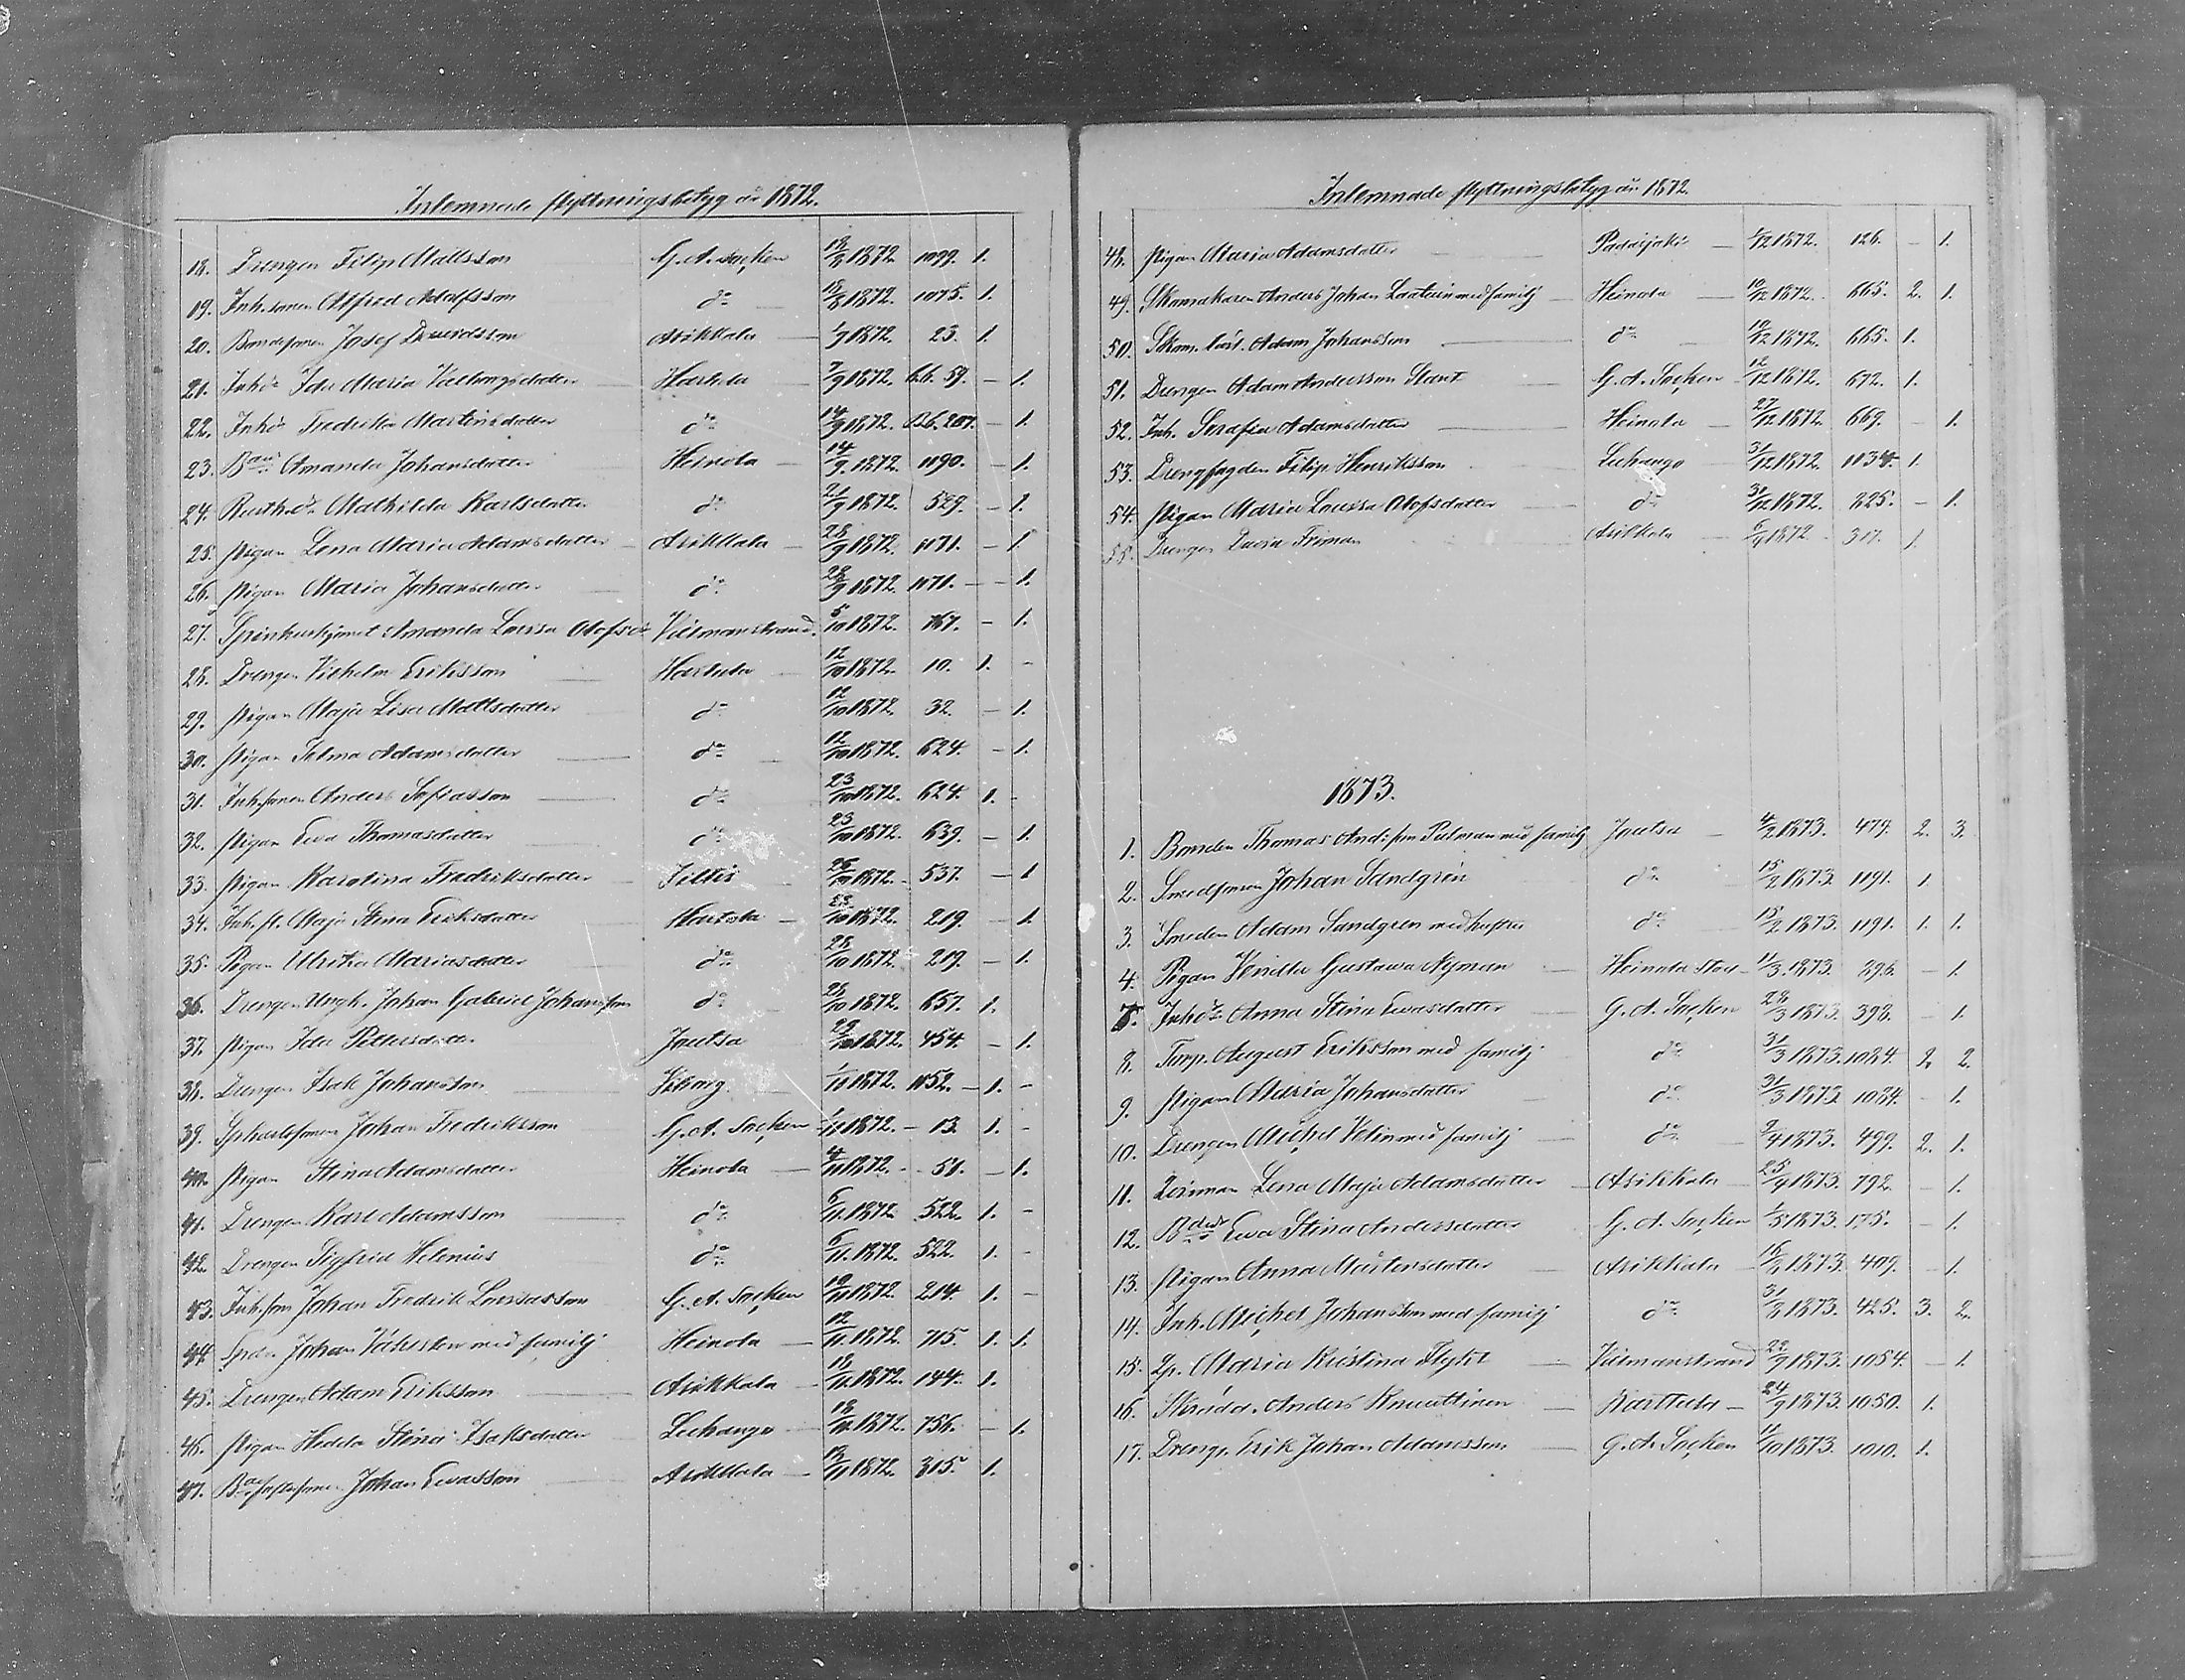 Inlemnade flyttningsbetyg år 1872.
18. Drengen Filip Mattsson G. A. Socken 18/8 1872. 1099. 1.
19. Inh.sonen Alfred Adolfsson do 18/8 1872. 1075. 1.
20. Bondesonen Josef Davidsson Asikkala 1/9 1872. 23. 1.
21. Inh.dr Ida Maria Hartola 7/9 1872. 59. – 1.
22. Inh.dr Fredrika Martinsdotter do 14/9 1872. 207. – 1.
23. Amanda Johansdotter Heinola 14/9 1872. 1190. – 1.
24. Mathilda Karlsdotter do 21/9 1872. 529. – 1.
25. Pigan Lena Maria Adamsdotter Asikkala 28/9 1872. 1171. – 1.
26. Pigan Maria Johansdotter do 28/9 1872. 1171. – 1.
27. Spinhushjonet Amanda Lovisa Olofsdr Vilmanstrand. 5/10 1872. 767. – 1.
28. Drengen Vilhelm Eriksson Hartola 12/10 1872. 10. 1. –
29. Pigan Maja Lisa Mattsdotter do 12/10 1872. 32. – 1.
30. Pigan Selma Adamsdotter do 12/10 1872. 624. – 1.
31. Inh.sonen Anders Sofiasson do 23/10 1872. 624. 1. –
32. Pigan Eva Thomasdotter do 23/10 1872. 639. – 1.
33. Pigan Karolina Fredriksdotter Iittis 25/10 1872. 537. – 1
34. Inh. Maja Stina Eriksdotter Hartola 28/10 1872. 219. – 1.
35. Pigan Ulrika Mariasdotter do 28/10 1872. 219. – 1.
36. Drengen Ungk. Johan Gabriel Johansson do 28/10 1872. 657. 1.
37. Pigan Ida Pettersdotter Joutsa 29/10 1872. 454. – 1.
38. Drengen Isak Johansson 1/11 1872. 1052. – 1. –
39. Johan Fredriksson G. A. Socken 1/11 1872. – 13. 1. –
40. Pigan Stina Adamsdotter Heinola 4/11 1872. – 51. – 1.
41. Drengen Karl Adamsson do 6/11 1872. 522. 1. –
42. Drengen Sigfrid Helenius do 6/11. 1872. 522. 1. –
43. Inh.son Johan Fredrik Lovisasson G. A. Socken 12/11 1872. 214. 1. –
44. Johan med familj Heinola 12/11. 1872. 715. 1. 1.
45. Drengen Adam Eriksson Asikkala 18/11. 1872. 144. 1.
46. Pigan Hedda Stina Isaksdotter Luhango 18/11 1872. 756. – 1.
47. Johan Evasson Asikkala 18/11 1872. 315. 1.
Inlemnade flyttningsbetyg år 1872.
48. Pigan Maria Adamsdotter Padasjoki 1/12 1872. 126. – 1.
49. Skomakaren Anders Johan med familj Heinola 10/12 1872. 665. 2. 1.
50. Skom. lärl. Adam Johansson do 10/12 1872. 665. 1.
51. Drengen Adam Andersson G. A. Socken 12/12 1872. 672. 1.
52. Inh. Serafia Adamsdotter Heinola 27/12 1872. 669. – 1.
53. Drengpojken Filip Henriksson Luhango 31/12 1872. 1134. 1.
54. Pigan Maria Lovisa Olofsdotter do 31/12 1872. 225. – 1.
55. Drengen Friman Asikkala 5/9 1872 – 317. 1.
1873.
1. Bonden Thomas And:son med familj Joutsa 4/2 1873. 479. 2. 3.
2. Smedsonen Johan Sandgrén do 15/2 1873. 1191. 1.
3. Smeden Adam Sandgren med hustru do 15/2 1873. 1191. 1. 1.
4. Pigan Vendla Gustava Nyman Heinola stad 11/3. 1873. 296. – 1.
7. Inh.dr Anna Stina Evasdotter G. A. Socken 28/3 1873. 398. – 1.
8. Torp. August Eriksson med familj do 31/3 1873. 1084. 2. 2.
9. Pigan Maria Johansdotter do 31/3 1873. 1084. – 1.
10. Drengen Michel Velin med familj do 2/4 1873. 499. 2. 1.
11. Lena Maja Adamsdotter Asikkala 25/4 1873. 792. – 1.
12. Eva Stina Andersdotter G. A. Socken 1/5 1873. 175. – 1.
13. Pigan Anna Mårtensdotter Asikkala 16/8 1873. 409. – 1.
14. Inh. Michel Johansson med familj do 31/8 1873. 425. 3. 2.
15. Maria Kristina Flykt Vilmanstrand 22/9 1873. 1054. – 1.
16. Skrädd. Anders Knuuttinen Karttula – 24/9 1873. 1050. 1.
17. Drengen Erik Johan Adamsson G. A. Socken 11/10 1873. 1010. 1.